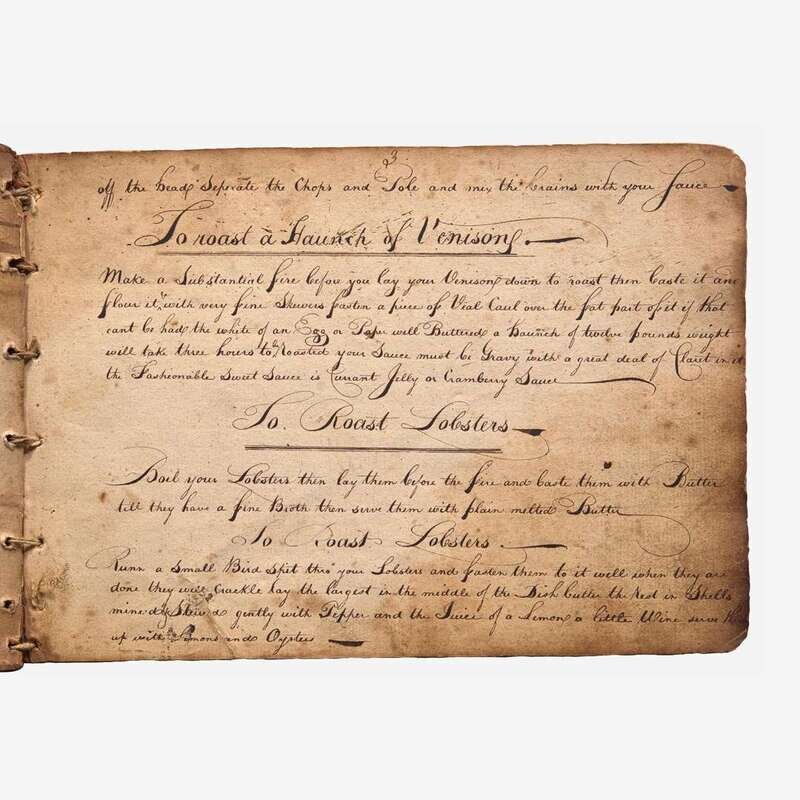 3
off the head Seperate the Chops and Pole and mix the brains with your Sauce
To roast a Haunch of Venison
Make a Substantial fire before you lay your Venison down to roast then baste it and
flour it, with very fine Skewers fasten a piece of Vial Caul over the fat part of it if that
cant be had the white of an Egg or Paper well Buttered a haunch of twelve pounds weight
will take three hours to Roasted your Sauce must be Gravy with a great deal of Claret in it
the Fashionable Sweet Sauce is Currant Jelly or Cramberry Sauce
To Roast Lobsters
Boil your Lobsters then lay them before the fire and baste them with Butter
till they have a fine Broth then serve them with plain melted Butter
To Roast Lobsters
Runn a small Bird Spit thro' your Lobsters and fasten them to it well when they are
done they will Crackle lay the largest in the middle of the Dish butter the Rest in Shells
mined & Stewed gently with Pepper and the Juice of a Lemon a little Wine serve
up with Lemons and Oysters